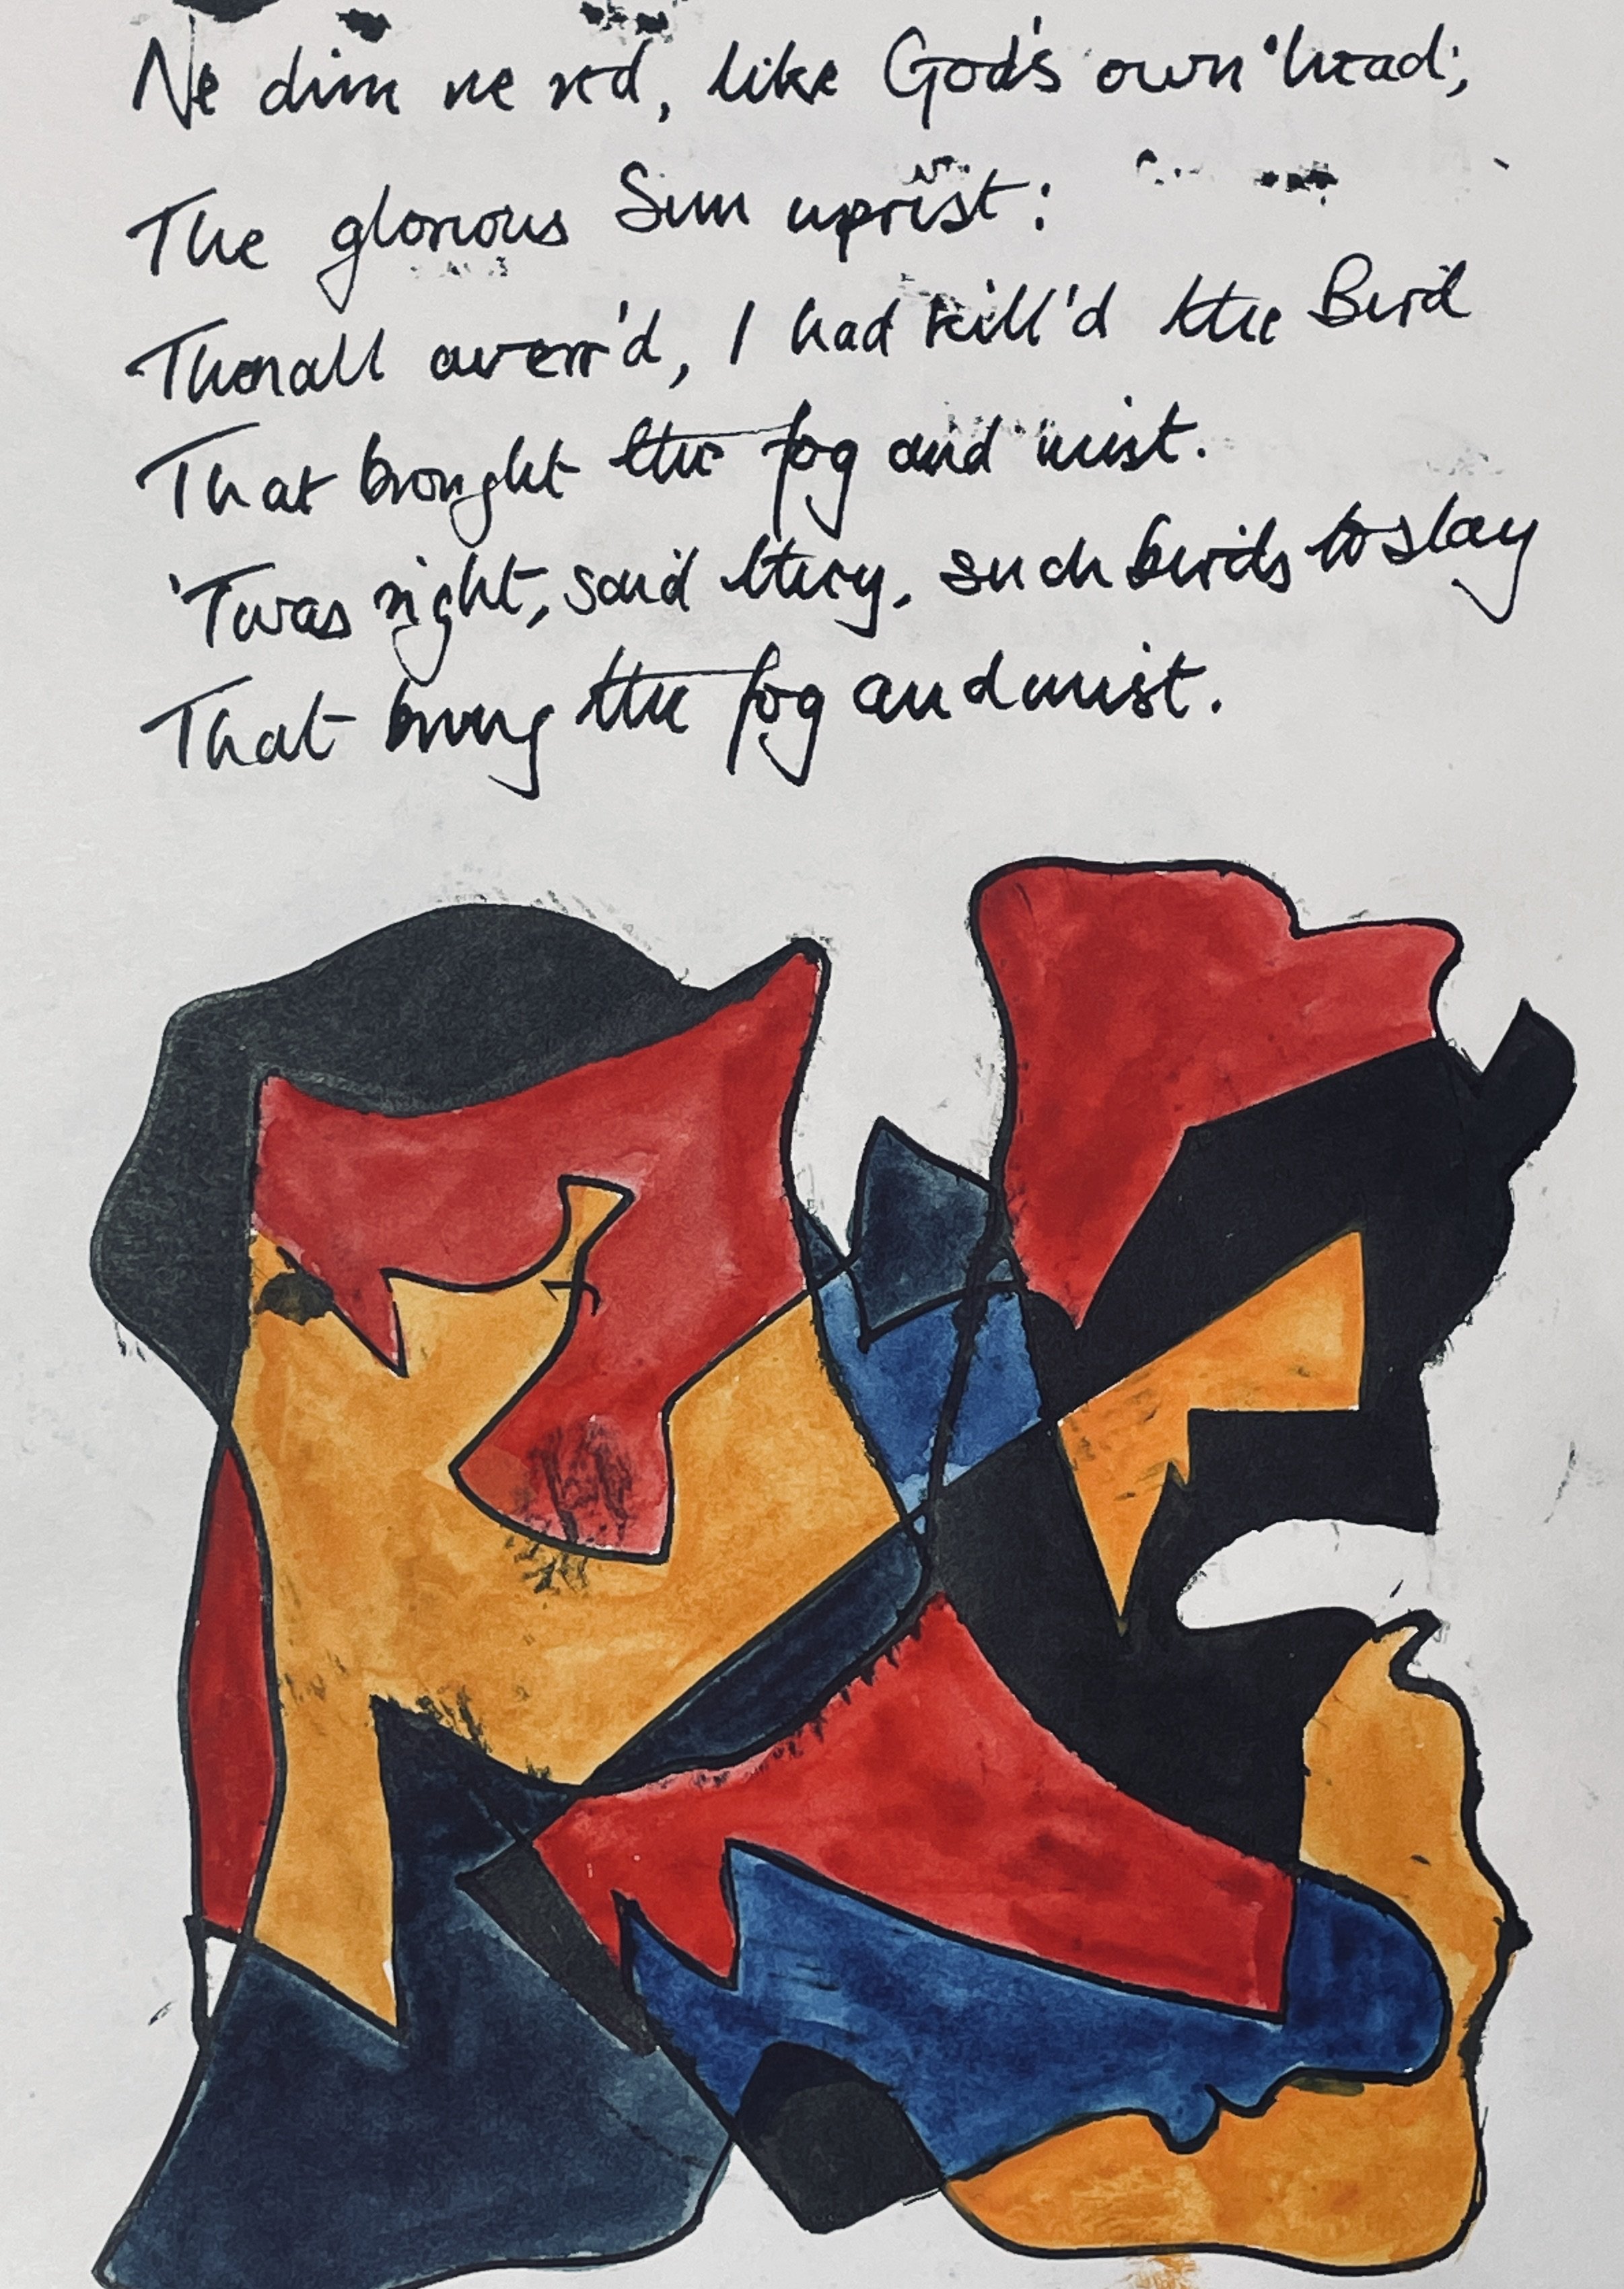 Ne dim ne red, like God's own head,
The glorious Sun uprist:
Then all averr'd, I had kill'd the Bird
That brought the fog and mist.
'Twas right, said they, such birds to slay
That bring the fog and mist.